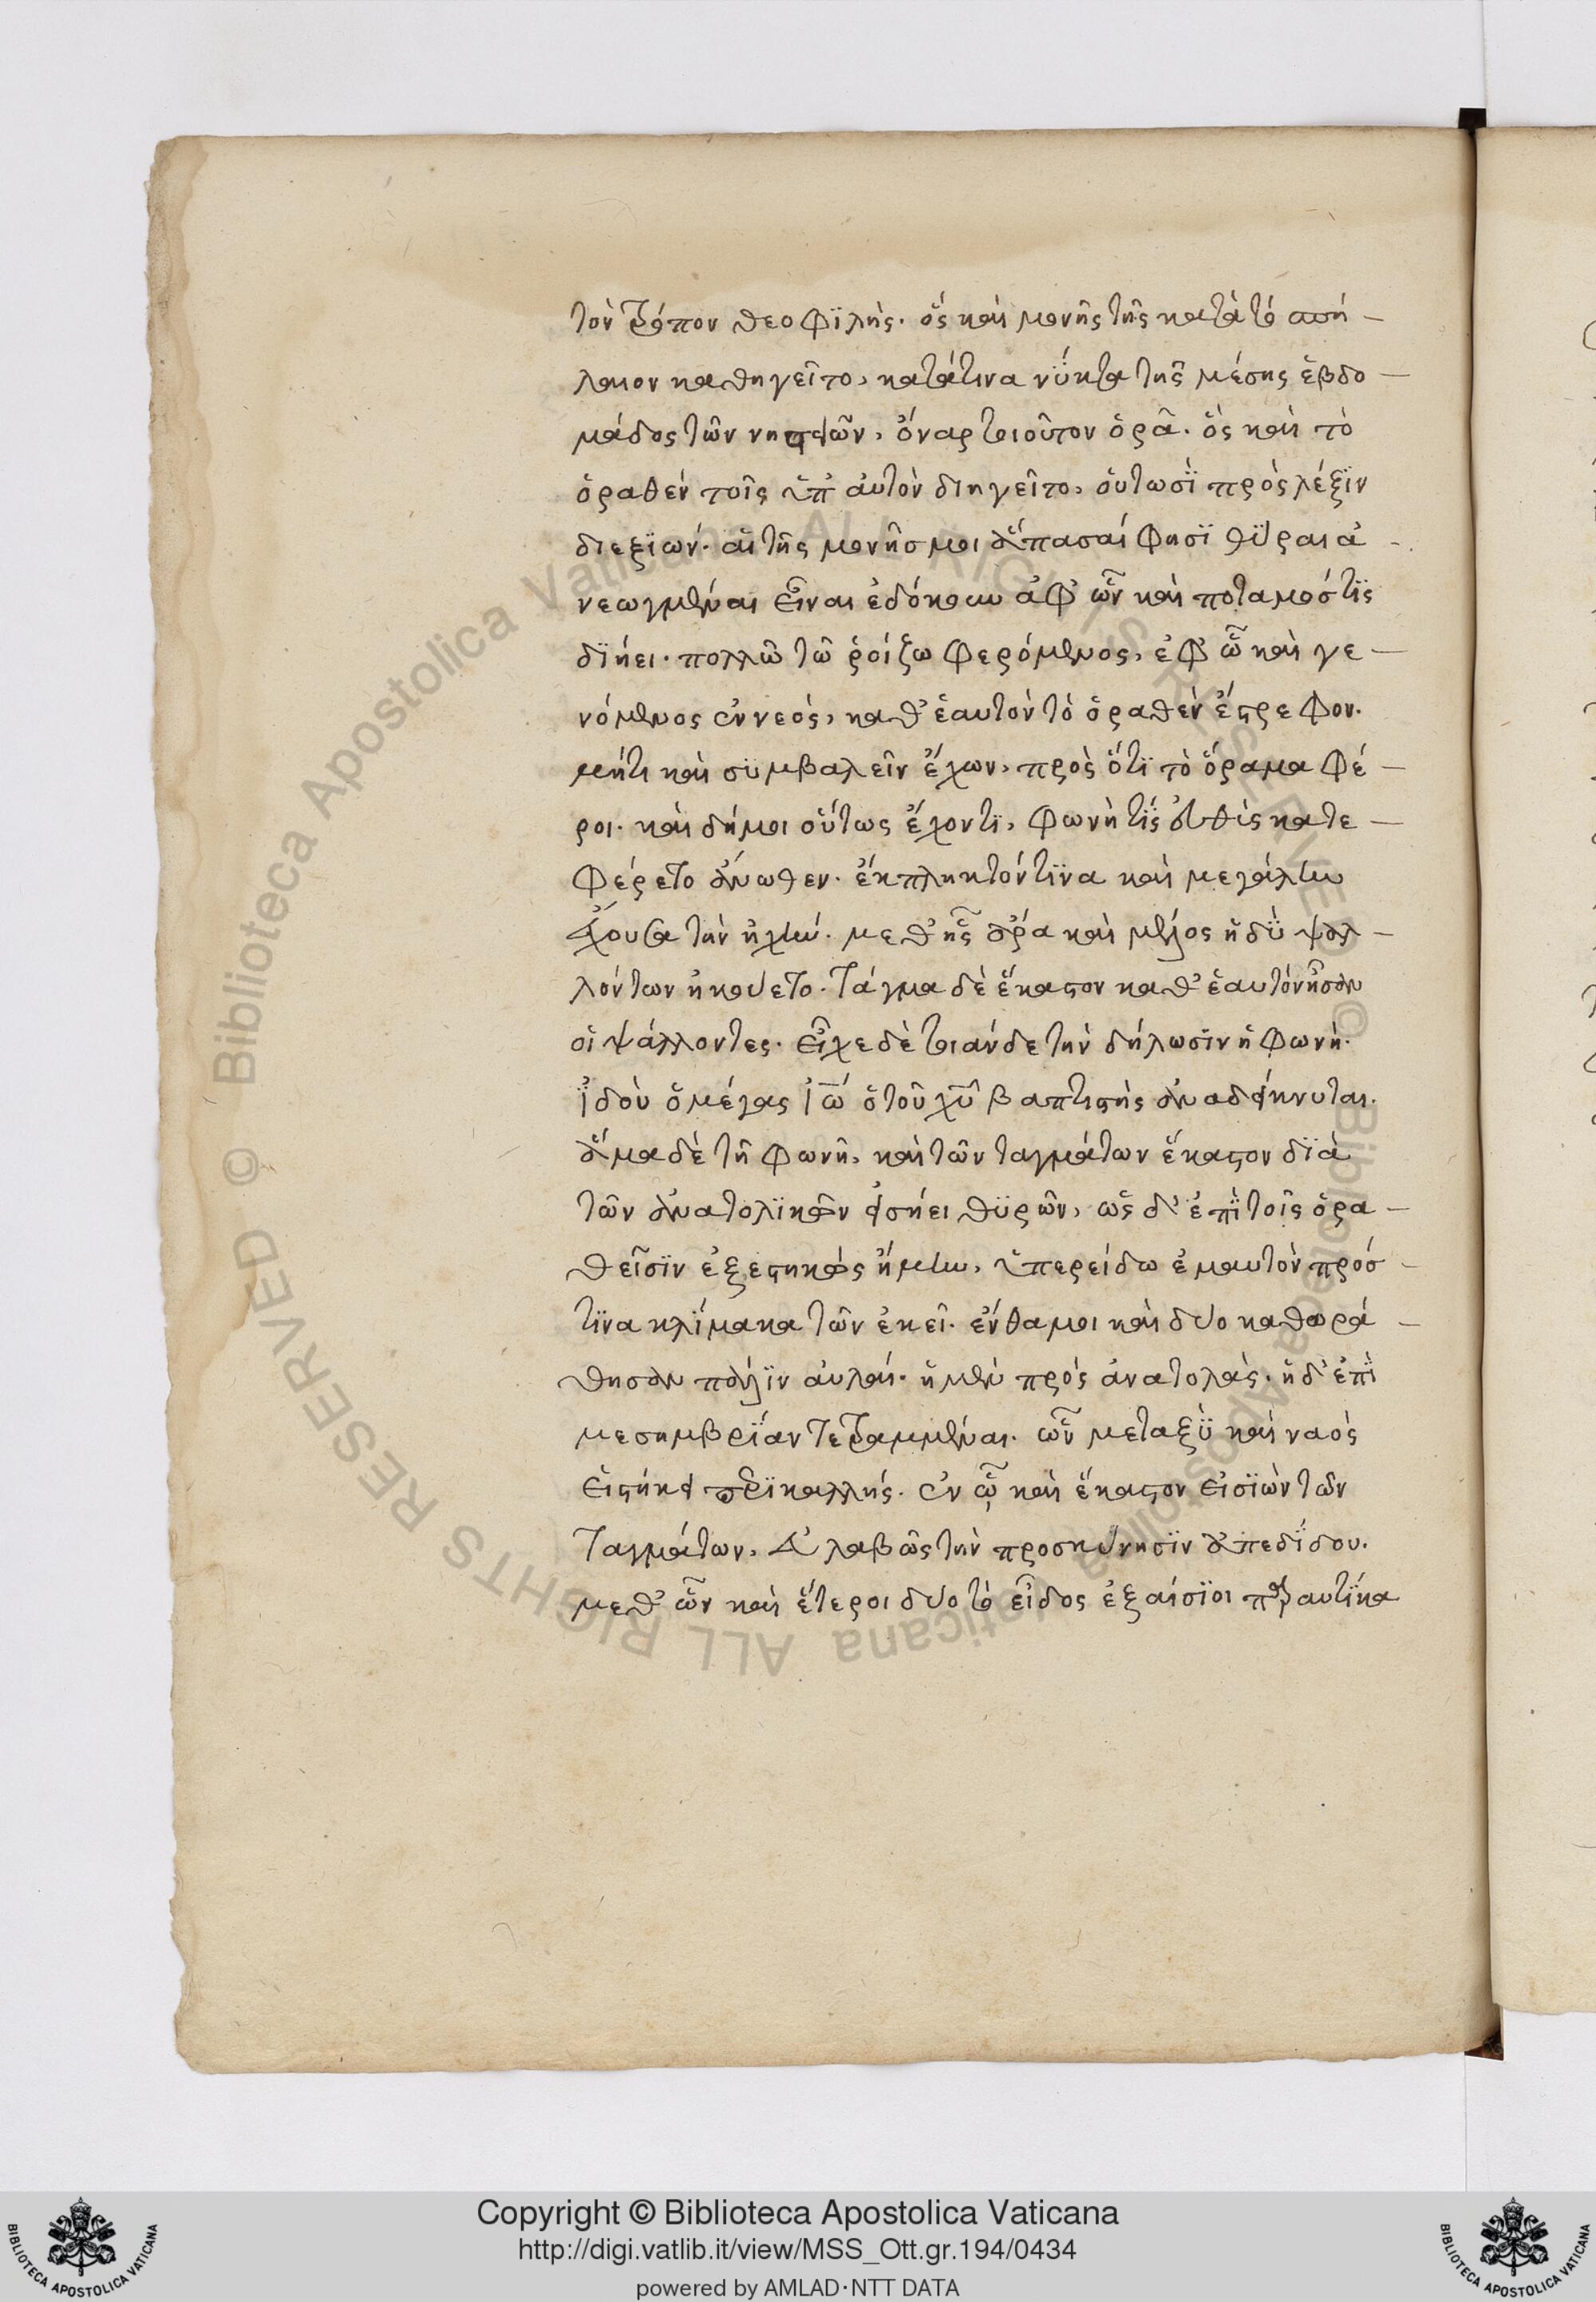 τὸν τρόπον θεοφϊλὴς. ὅς καὶ μονῆς τῆς κατὰ τὸ σπή-
λαιον καθηγεῖτο, κατάτινα νύκτα τῆς μέσης ἑβδο-
μάδος τῶν νηστειῶν, ὄναρ τοιοῦτον ὁρᾶ. ὃς καὶ τὸ
ὁραθέν τοῖς ὑπ' αὐτὸν διηγεῖτο, οὑτωσῒ πρὸς λέξϊν
διεξϊών. αἱ τῆς μονῆς μοι ἅπασαί φησϊ θύραι ἀ-
νεωγμέναι εἶναι ἐδόκουν ἀφ' ὧν καὶ ποταμός τϊς
δϊήει. πολλῶ τῶ ῥοίζω φερόμενος, ἐφ' ὧ καὶ γε-
νόμενος ἐννεὸς, καθ' ἑαυτὸν τὸ ὁραθὲν ἔστρεφον.
μήτι καὶ συμβαλεῖν ἔχων, πρὸς ὅτϊ τὸ ὅραμα φέ-
ροι. καὶ δήμοι οὕτως ἔχοντϊ, φωνὴ τίς αὖθις κατε-
φέρετο ἄνωθεν. ἔκπληκτόν τϊνα καὶ μεγάλην
ἔχουσα τὴν ἠχήν. μεθ' ἧς ἄρα καὶ μέλος ἡδὺ ψαλ-
λόντων ἠκούετο. τάγμα δὲ ἕκαστον καθ' ἑαυτὸν ἦσαν
οἱ ψάλλοντες. εἶχε δὲ τοιάνδε τὴν δήλωσϊν ἡ φωνὴ.
ἰδοὺ ὁ μέγας ἰω ὁ τοῦ χυ βαπτιστὴς ἀναδείκνυται.
ἅμα δὲ τῆ φωνῆ, καὶ τῶν ταγμάτων ἕκαστον δϊὰ
τῶν ἀνατολϊκῶν εἰσήει θυρῶν, ὡς δ' ἐπὶ τοῖς ὁρα-
θεῖσϊν ἐξεστηκὼς ἤμην, ὑπερείδω ἐμαυτὸν πρός
τϊνα κλίμακα τῶν ἐκεῖ. ἔνθα μοι καὶ δύο καθωρά-
θησαν πάλϊν αὐλαὶ. ἡ μὲν πρὸς ἀνατολὰς. ἡ δ' ἐπὶ
μεσημβρίαν τετραμμέναι. ὧν μεταξὺ καὶ ναὸς
εἱστήκει περϊκαλλής. ἐν ᾧ καὶ ἕκαστον εἰσϊὼν τῶν
ταγμάτων, εὐλαβῶς τὴν προσκύνησϊν ἀπεδίδου.
μεθ' ὧν καὶ ἕτεροι δύο τὸ εἶδος ἐξαίσϊοι παραυτίκα
Copyright © Biblioteca Apostolica Vaticana
http://digi.vatlib.it/view/MSS_Ott.gr.194/0434
powered by AMLAD·NTT DATA
BIBLIOTECA APOSTOLICA VATICANA
BIBLIOTECA APOSTOLICA VATICANA
© Biblioteca Apostolica Vaticana ALL RIGHTS RESERVED © Biblioteca Apostolica Vaticana ALL RIGHTS RESERVED